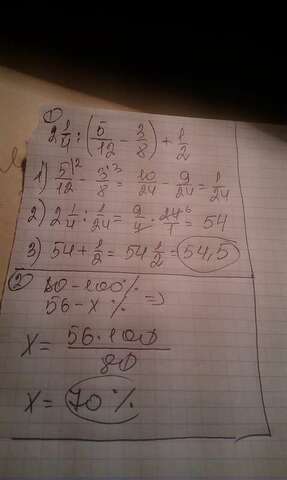 ①
2 1/4 : (5/12 - 3/8) + 1/2
1) 5/12 ² - 3/8 ³ = 10/24 - 9/24 = 1/24
2) 2 1/4 : 1/24 = 9/4 · 24/1 ⁶ = 54
3) 54 + 1/2 = 54 1/2 = 54,5
②
80 - 100 %
56 - x % =>
x = 56·100/80
x = 70 %